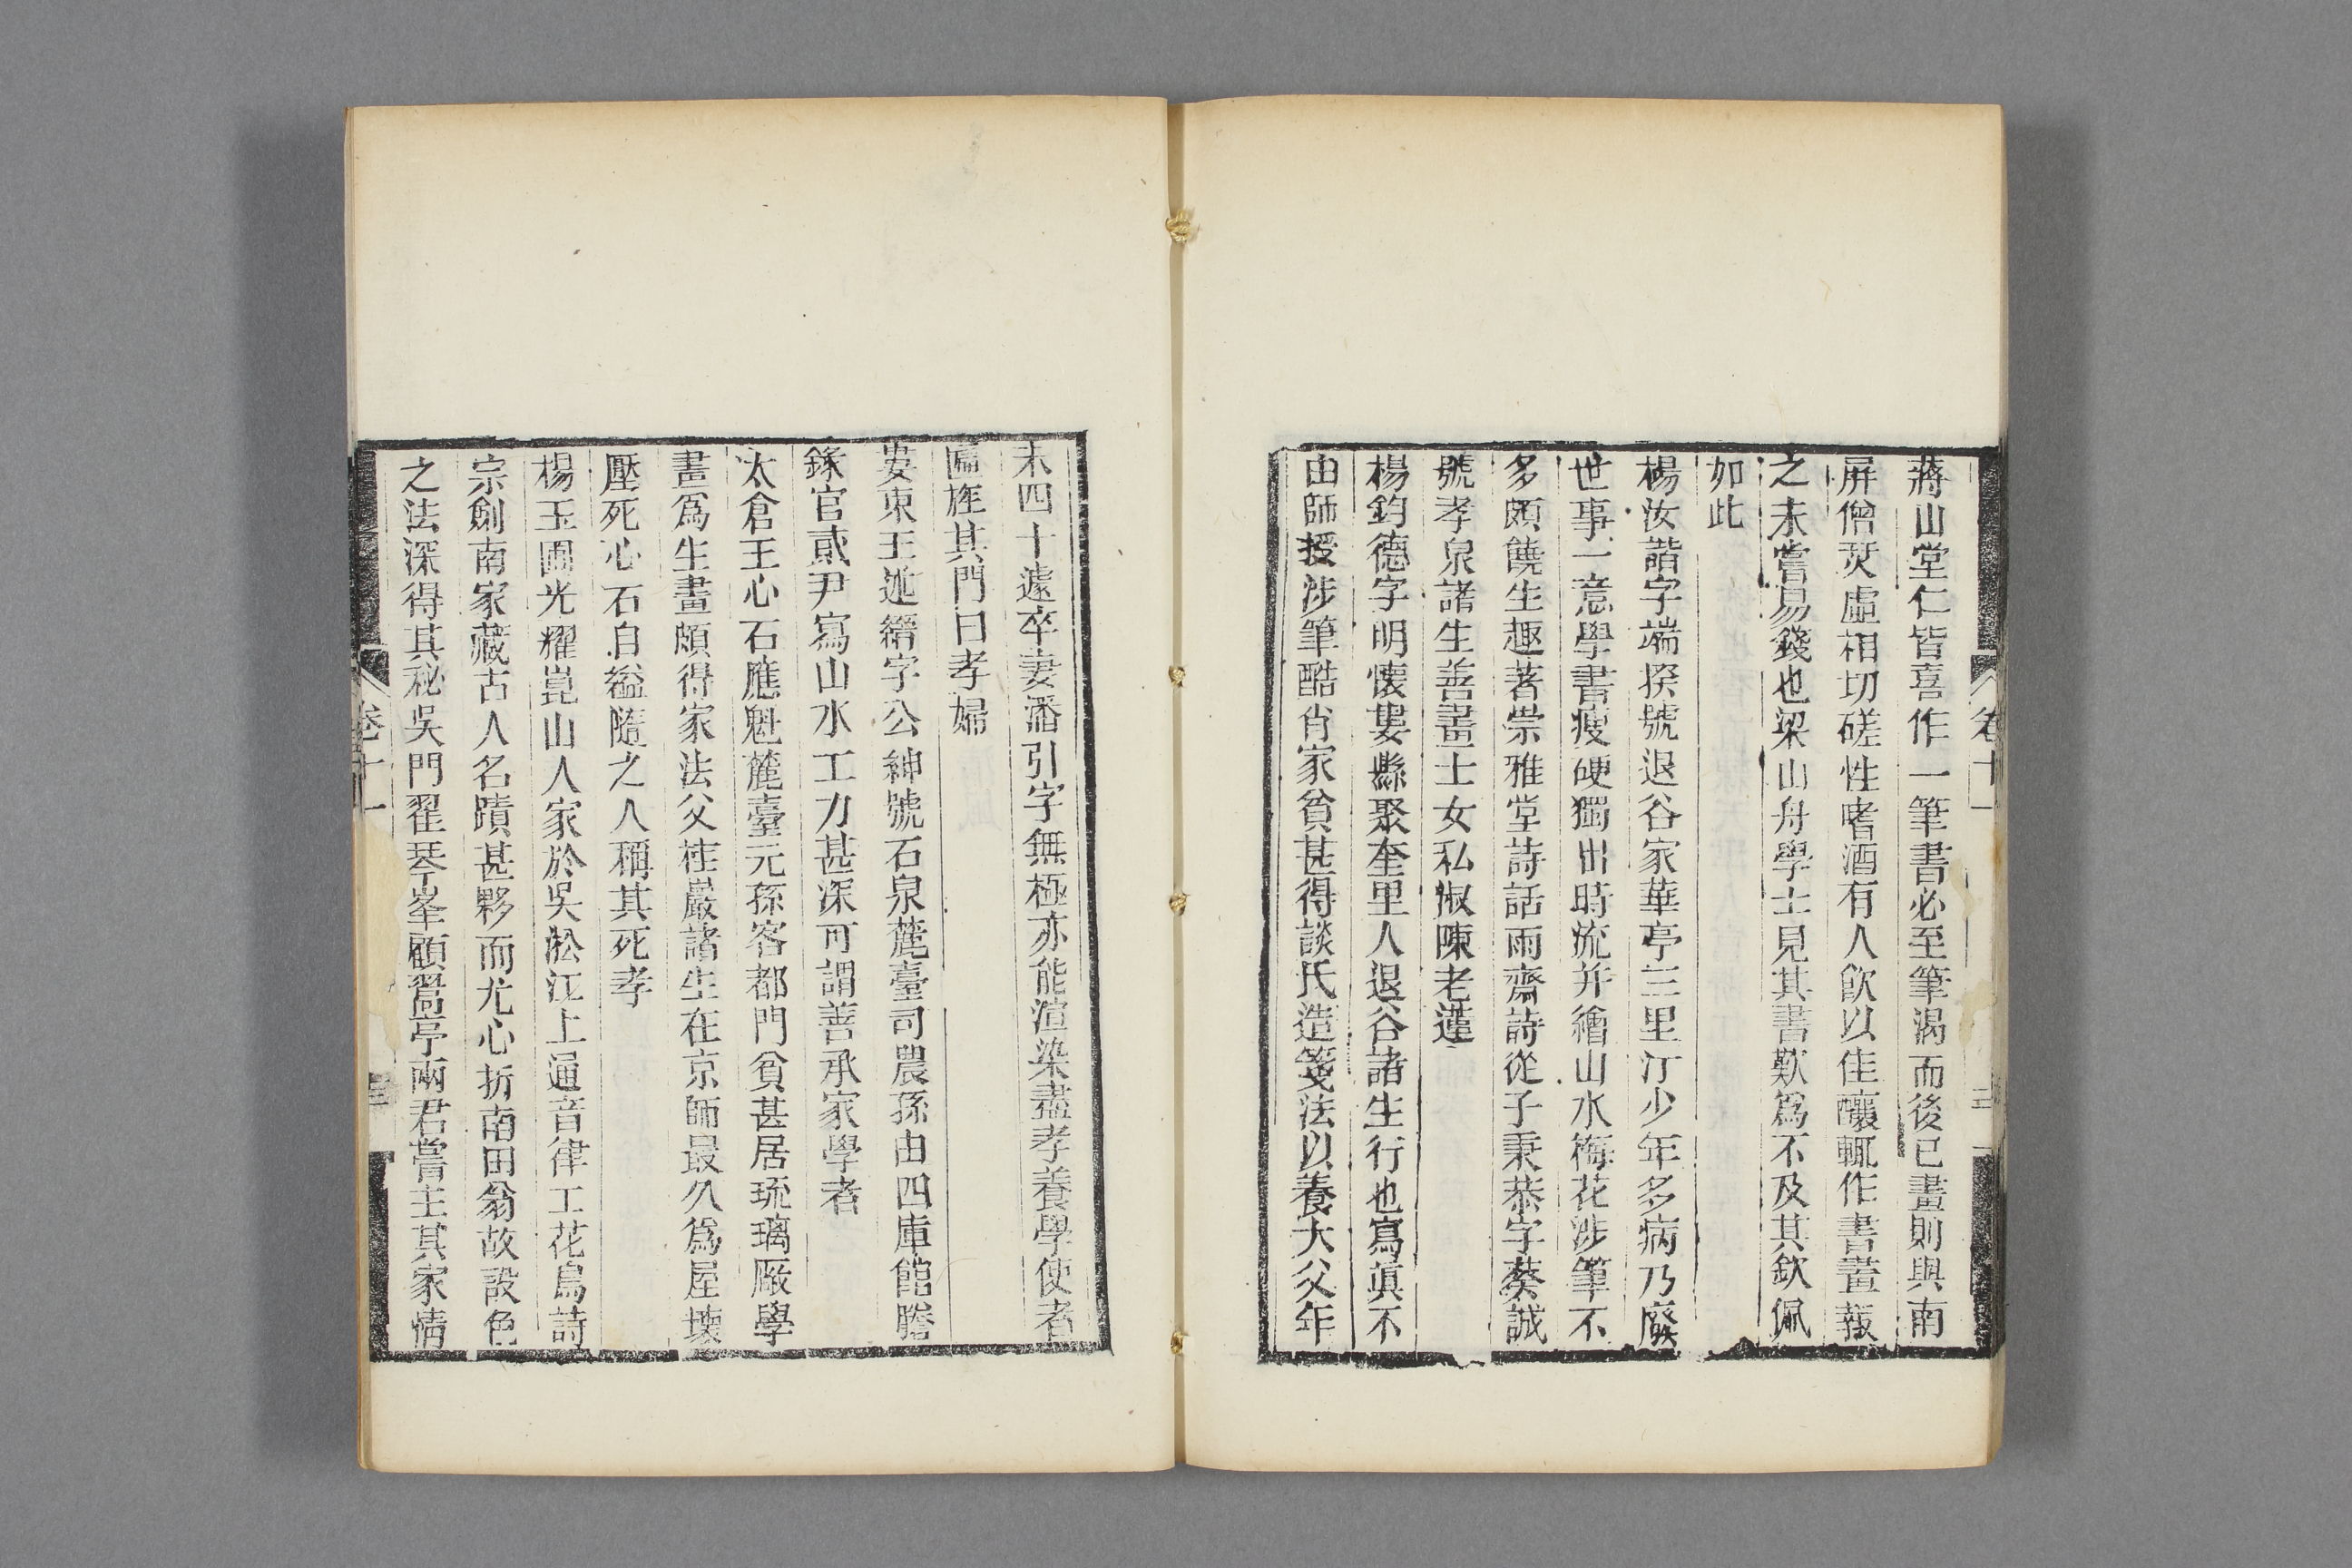 蔣山堂仁皆喜作一筆書必至筆渴而後已畫則與南
屏僧烎虛相切磋性嗜酒有人飮以佳釀輒作書畫報
之未嘗易錢也梁山舟學士見其書歎爲不及其欽佩
如此
楊汝諧字端揆號退谷家華亭三里汀少年多病乃廢
世事一意學書瘦硬獨出時流并繪山水梅花涉筆不
多頗饒生趣著崇雅堂詩話雨齋詩從子秉恭字葵誠
號孝泉諸生善畫士女私淑陳老蓮
楊鈞德字明懷婁縣聚奎里人退谷諸生行也寫眞不
由師授涉筆酷肖家貧甚得談氏造箋法以養大父年
卷十一
三
未四十遽卒妻潘引字無極亦能渲染盡孝養學使者
匾旌其門曰孝婦
婁東王延縉字公紳號石泉麓臺司農孫由四庫館謄
錄官貳尹寫山水工力甚深可謂善承家學者
太倉王心石應魁麓臺元孫客都門貧甚居琉璃厰學
畫爲生畫頗得家法父桂巖諸生在京師最久爲屋壞
壓死心石自縊隨之人稱其死孝
楊玉圃光耀崑山人家於吳淞江上通音律工花鳥詩
宗劍南家藏古人名蹟甚夥而尤心折南田翁故設色
之法深得其秘吳門翟琴峯顧鶴亭兩君嘗主其家情
卷十一
三